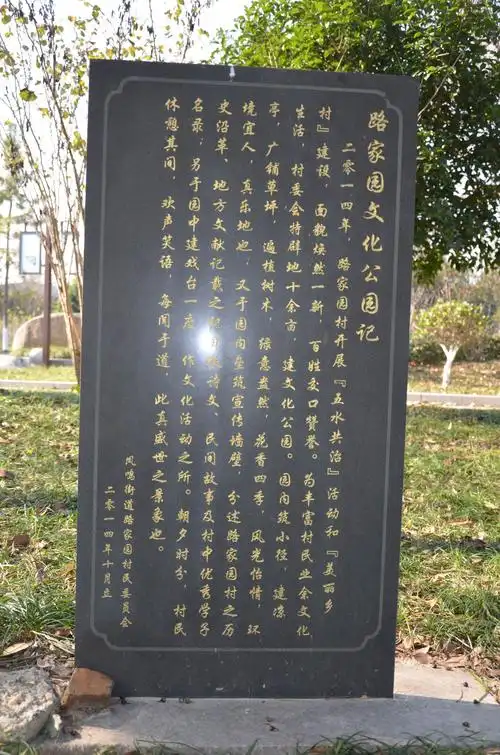 路家园文化公园记
二零一四年，路家园村开展『五水共治』活动和『美丽乡
村』建设，面貌焕然一新，百姓交口赞誉。为丰富村民业余文化
生活，村委会特辟地十余亩，建文化公园。园内筑小径，建凉
亭，广铺草坪，遍植树木，绿意盎然，花香四季，风光怡情，环
境宜人，真乐地也。又于园内垒筑宣传墙壁，分述路家园村之历
史沿革、地方文献记载之诗文、民间故事及村中优秀学子
名录，另于园中建戏台一座，作文化活动之所。朝夕时分，村民
休憩其间，欢声笑语，每闻于道，此真盛世之景象也。
凤鸣街道路家园村民委员会
二零一四年十月立